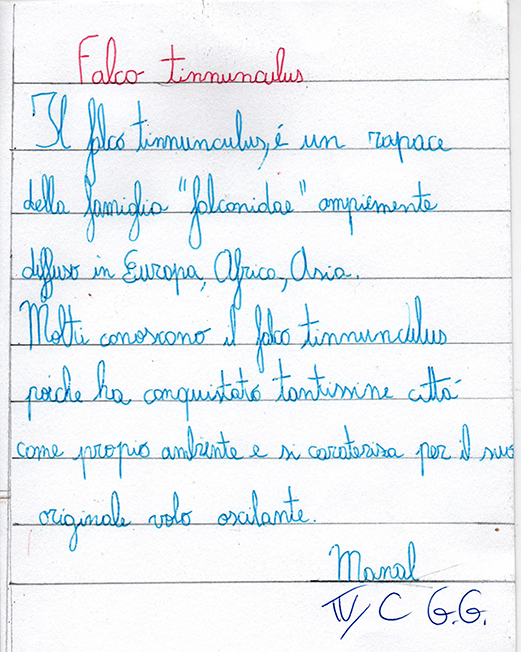 Falco tinnunculus
Il falco tinnunculus, é un rapace
della famiglia "falconidae" ampiemente
diffuso in Europa, Africa, Asia.
Molti conoscono il falco tinnunculus
poiche ha conquistato tantissine cittá
come propio ambiente e si caraterisa per il suo
originale volo oscilante.
Manal
IV/C G.G.